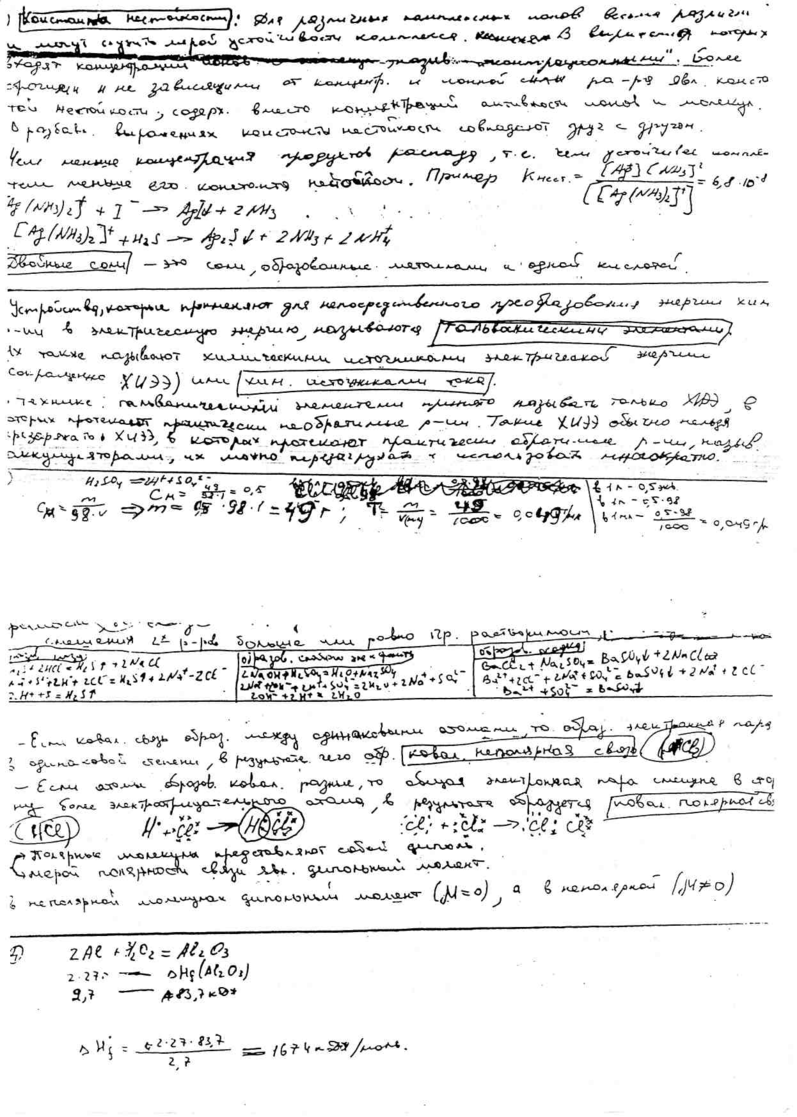 ) Константа нестойкости: Для различных комплексных ионов весьма различн
и могут служить мерой устойчивости комплекса. В выражения которых
входят концентрации ионов и назыв. "концентрационными". Более
строгими и не зависящими от концентр. и ионной силы ра-ра явл. конста
той нестойкости, содерж. вместо концентраций активности ионов и молекул.
В разбавл. выражениях константы нестойкости совпадают друг с другом.
Чем меньше концентрация продуктов распада, т.е. чем устойчивее компле-
тем меньше его константа нестойкости. Пример Kнест.= [Ag⁺][NH3]² / [[Ag(NH3)2]⁺] = 6,8·10⁻⁸
Ag(NH3)2]⁺ + I⁻ → AgI↓ + 2NH3
[Ag(NH3)2]⁺ + H2S → Ag2S↓ + 2NH3 + 2NH4⁺
Двойные соли – это соли, образованные металлами и одной кислотой.
Устройства, которые применяют для непосредственного преобразования энергии хим
-ии в электрическую энергию, называются гальваническими элементами.
Их также называют химическими источниками электрической энергии
сокращенно ХИЭЭ) или хим. источниками тока.
технике: гальваническими элементами принято называть только ХИЭЭ, в
оторых протекают практически необратимые р-ии. Такие ХИЭЭ обычно нельзя
перезаряжать. ХИЭЭ, в которых протекают практически обратимые р-ии, назыв.
аккумуляторами, их можно перезагружать и использовать многократно.
H2SO4 = 2H⁺ + SO4²⁻
CM = m / 98·V ⇒ m = 0,5·98·1 = 49 г ; T = m / V(мл) = 49 / 1000 = 0,049 г/мл
CH = 49 / 98·1 = 0,5
в 1 л – 0,5 экв.
в 1 л – 0,5·98
в 1 мл – 0,5·98 / 1000 = 0,049 г/м
смешения 2х р-ров больше или равно Пр. растворимости
+ 2HCl = H2S↑ + 2NaCl
+ S²⁻ + 2H⁺ + 2Cl⁻ = H2S↑ + 2Na⁺ + 2Cl⁻
2H⁺ + S = H2S↑
образов. слабого эл-та
2NaOH + H2SO4 = H2O + Na2SO4
2Na⁺ + 2OH⁻ + 2H⁺ + SO4²⁻ = 2H2O + 2Na⁺ + SO4²⁻
2OH⁻ + 2H⁺ = 2H2O
образов. осадка
BaCl2 + Na2SO4 = BaSO4↓ + 2NaCl
Ba²⁺ + 2Cl⁻ + 2Na⁺ + SO4²⁻ = BaSO4↓ + 2Na⁺ + 2Cl⁻
Ba²⁺ + SO4²⁻ = BaSO4↓
– Если ковал. связь образ. между одинаковыми атомами, то образ. электронная пара
в одинаковой степени, в результате чего обр. ковал. неполярная связь
– Если атомы образов. ковал. разные, то общая электронная пара смещена в сто
ну более электроотрицательного атома, в результате образуется ковал. полярная св
(HCl) H· + ·Cl: → H:Cl: :Cl· + ·Cl: → :Cl:Cl:
Полярные молекулы представляют собой диполь.
мерой полярности связи явл. дипольный момент.
в неполярной молекулах дипольный момент (μ=0), а в неполярной (μ≠0)
2Al + 3/2 O2 = Al2O3
2·27 — ΔHf(Al2O3)
2,7 — 83,7 кДж
ΔHf° = 2·27·83,7 / 2,7 = 1674 кДж/моль.